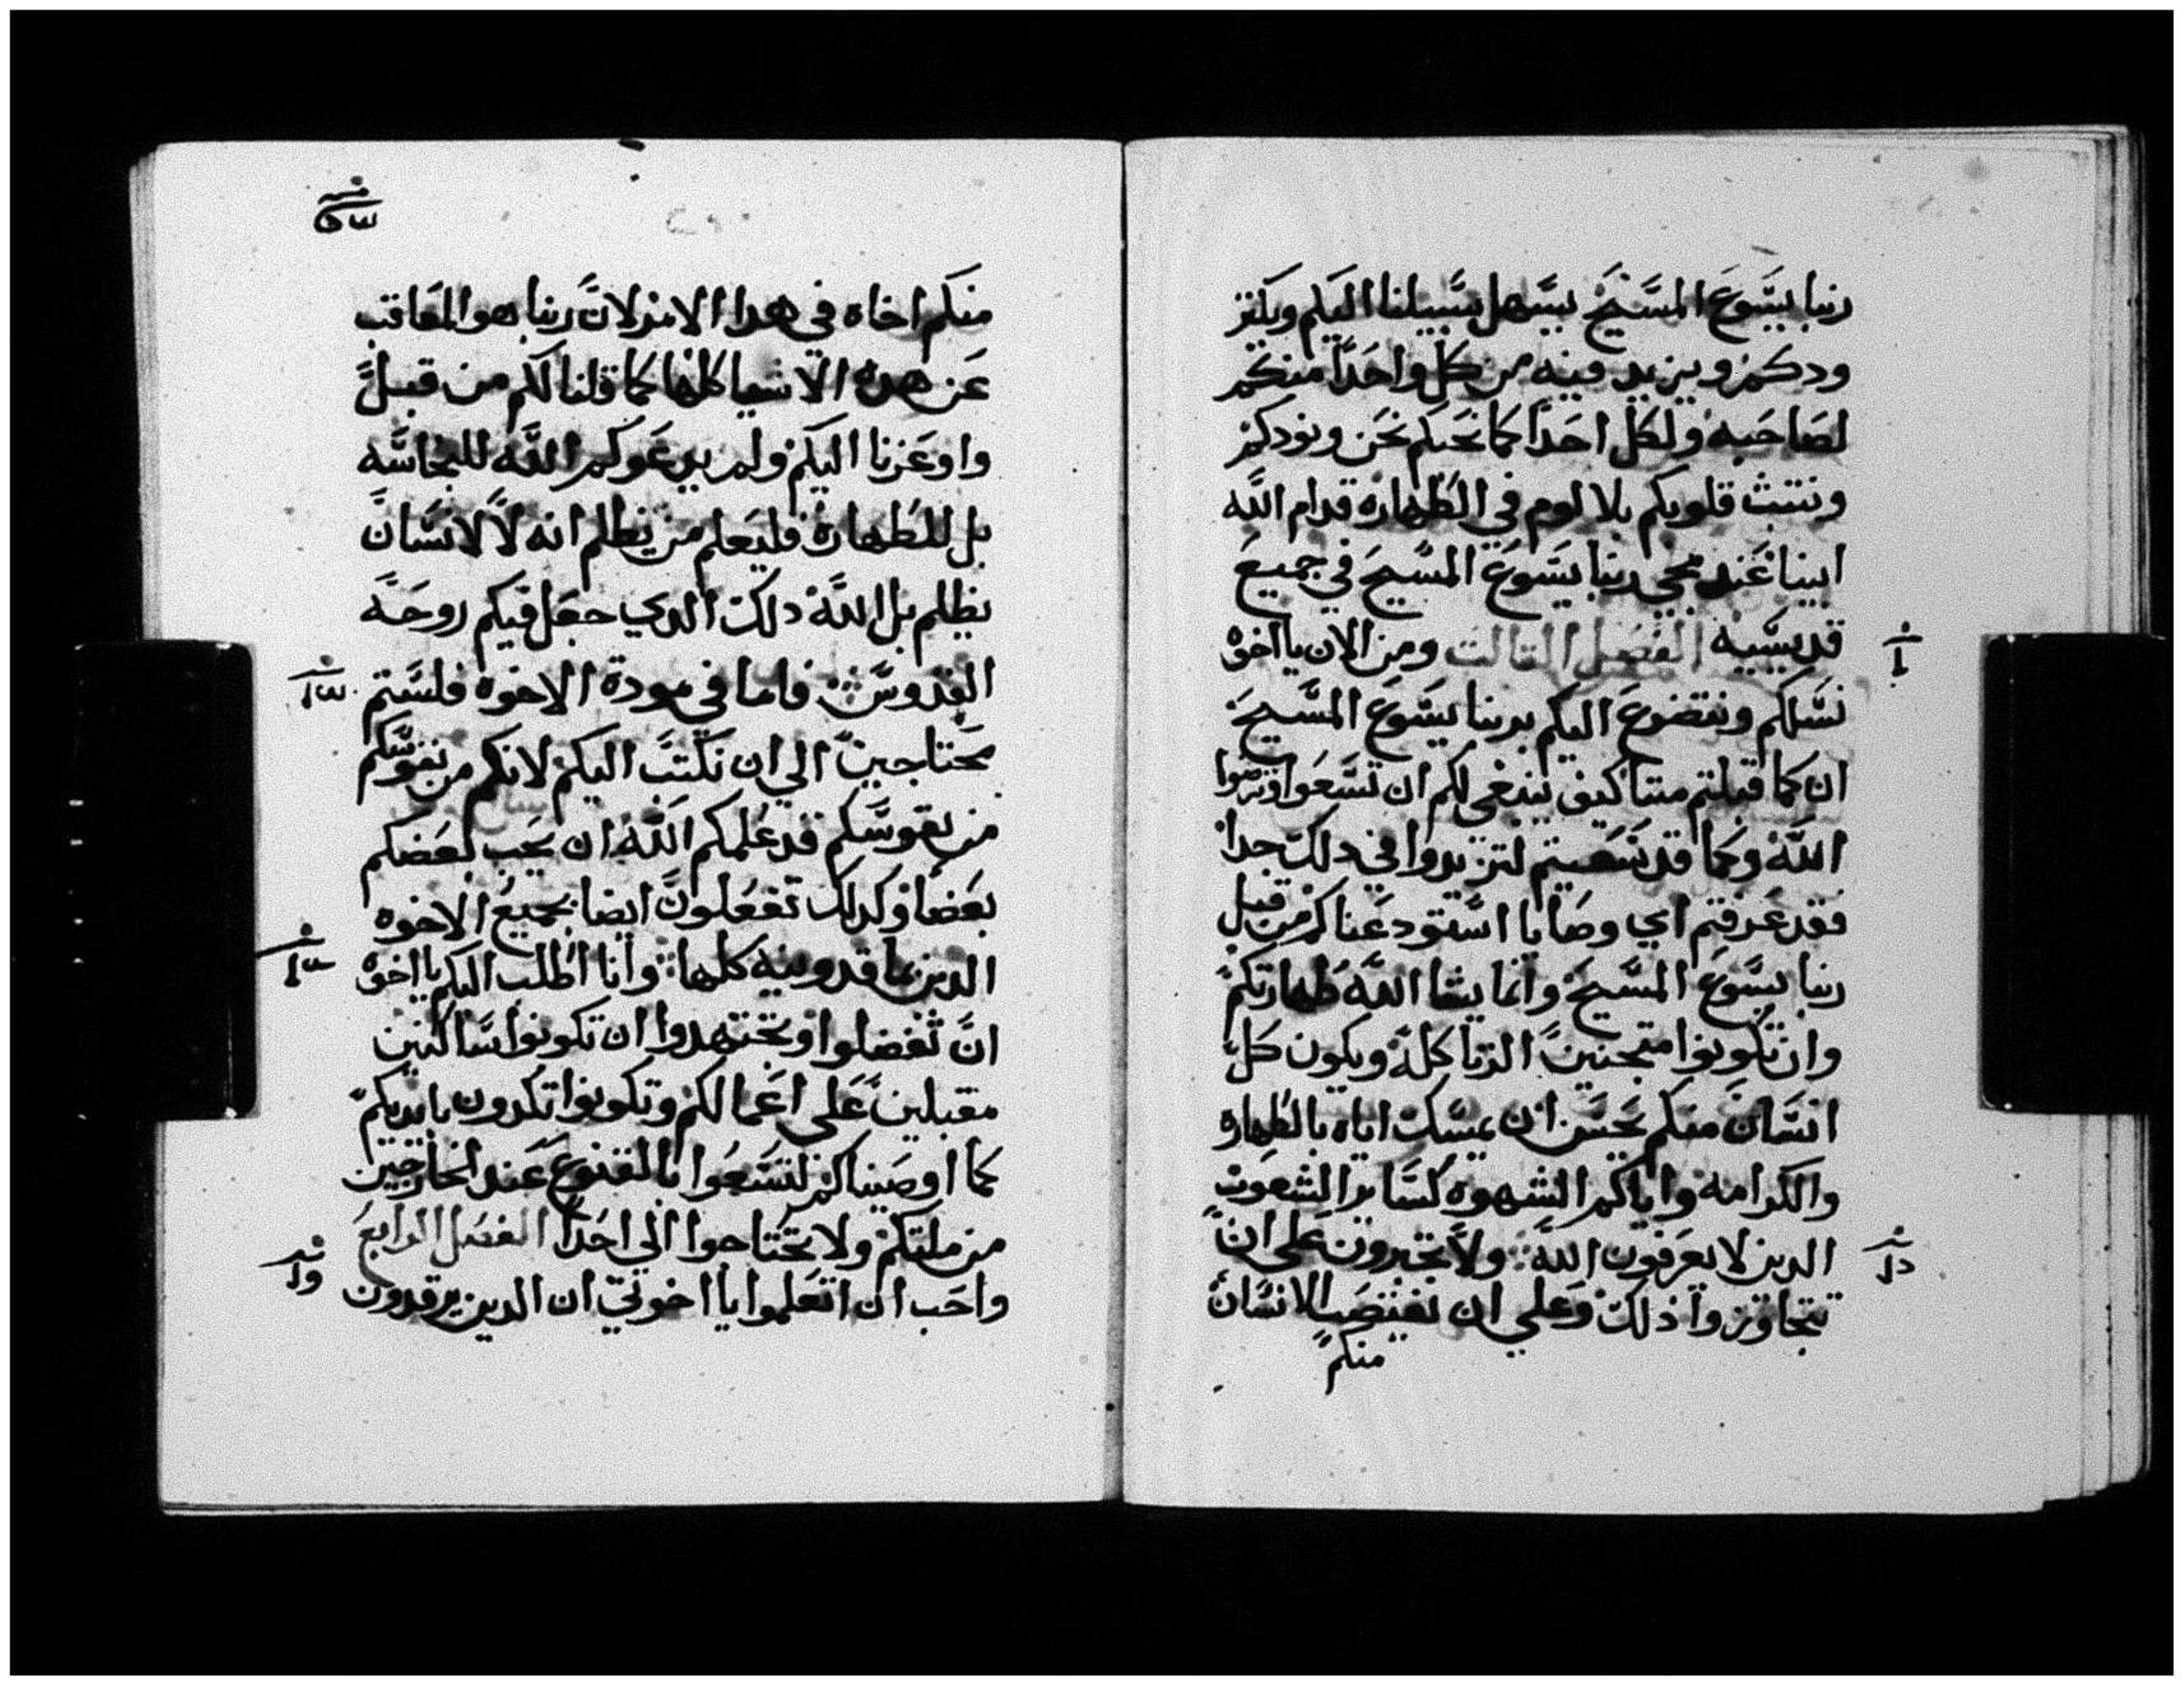 ربنا يسوع المسيح يسهل سبيلنا اليكم ويكثر
ودكم ويزيد فيه من كل واحدًا منكم
لصاحبه ولكل احدًا كما نحبكم نحن ونودكم
ونثبث قلوبكم بلا لوم في الطهاره قدام الله
ابينا عند مجي ربنا يسوع المسيح في جميع
قديسيه الفصل التالت ومن الان يا اخوة
نسلكم ونتضرع اليكم بربنا يسوع المسيح
ان كما قبلتم منا كيف ينبغي لكم ان تسعوا وترضوا
الله وكما قد سعيتم لتزيدوا في دلك جدا
فقد عرفتم اي وصايا استودعناكم من قبل
ربنا يسوع المسيح وانما يشا الله طهارتكم
وان تكونوا متجنبين الزنا كله ويكون كل
انسان منكم يحسن ان يمسك اناه بالطهاره
والكرامه واياكم الشهوه كساير الشعوب
الدين لا يعرفون الله ولا تجترون على ان
تتجاوزوا ذلك وعلي ان يغتصب الانسان
منكم
منكم اخاه في هدا الامر لان ربنا هو المعاقب
عن هده الاشيا كلها كما قلنا لكم من قبل
واوعزنا اليكم ولم يدعوكم الله للنجاسه
بل للطهارة فليعلم من يظلم انه لا لانسان
يظلم بل الله دلك الدي جعل فيكم روحه
القدوس فاما في مودة الاخوه فلستم
محتاجين الي ان نكتب اليكم لانكم من نفوسكم
من نفوسكم قد علمكم الله ان يحب بعضكم
بعضا وكدلك تفعلون ايضا بجميع الاخوه
الدين بماقدونيه كلها وانا اطلب اليكم يا اخوة
ان تفضلوا وتجتهدوا ان تكونوا ساكنين
مقبلين على اعمالكم وتكونوا تكدون بايديكم
كما اوصيناكم لتسعوا بالقنوع عند الخارجين
من ملتكم ولا تحتاجوا الي احدًا الفصل الرابع
واحب ان اتعلموا يا اخوتي ان الدين يرقدون